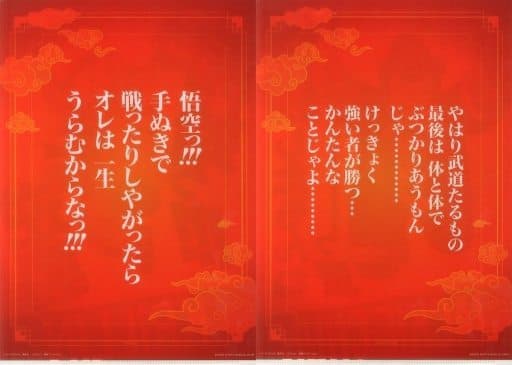 悟空っ!!!
手ぬきで
戦ったりしやがったら
オレは 一生
うらむからなっ!!!
やはり武道たるもの
最後は 体と体で
ぶつかりあうもん
じゃ…………
けっきょく
強い者が勝つ…
かんたんな
ことじゃよ………